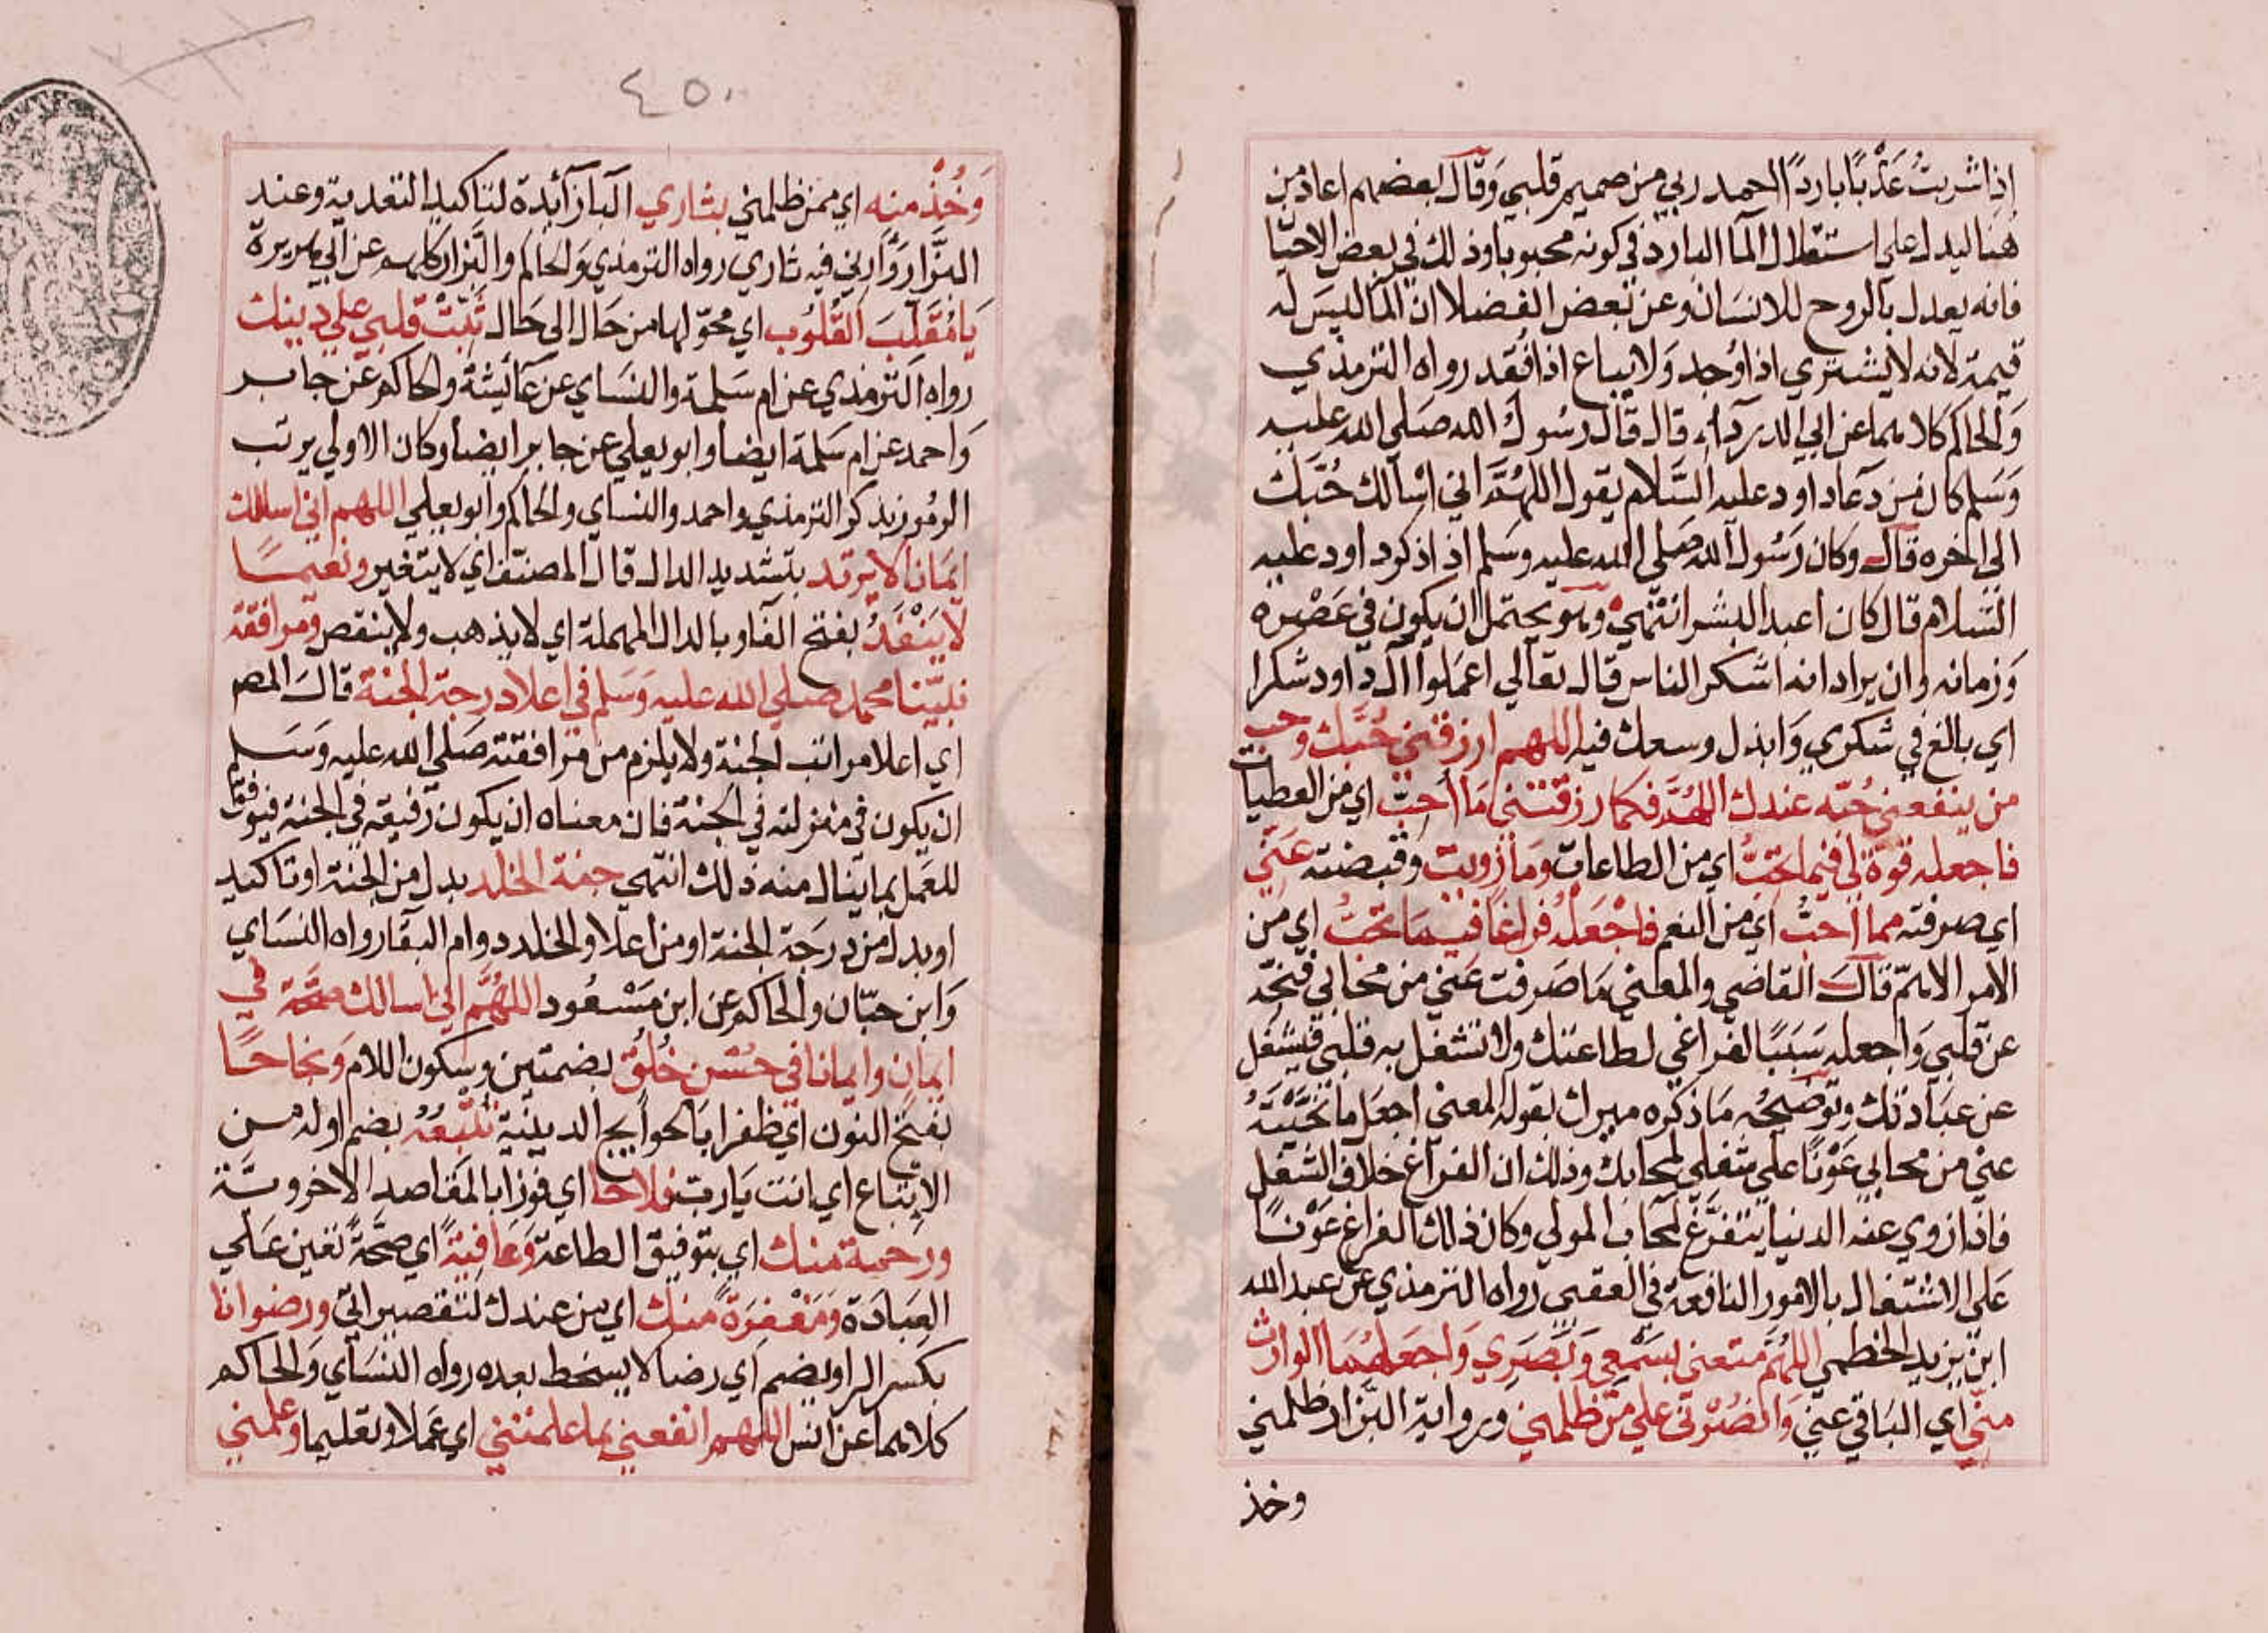 إذا شربتُ عَذْبًا باردًا الحمد ربي من صميم قلبي وَقال بعضهم اعاد من
هنا ليدل على استقلال الما البارد في كونه محبوبا وذلك في بعض الاحيا
فانه يعدل بالروح للانسان وعن بعض الفضلا ان الما ليس له
قيمة لانه لا يشتري اذا وُجد وَلا يباع اذا فُقد رواه الترمذي
وَالحاكم كلاهما عن ابي الدرداء قال قال رسُول الله صَلي الله عليه
وَسَلم كان من دعا داود عليه السَّلام يقول اللهُمَّ اني اسْالك حُبَّك
الى اخره قال وكان رَسُول الله صَلي الله عليه وسَلم اذا ذكر داود عليه
السَّلام قال كان اعبد البشر انتهي وهو يحتمل ان يكون في عَصْره
وَزمانه وان يراد انه اشكر الناس قال تعالي اعمَلوا آل داود شكرا
اي بالغ في شكري وَابذل وسعك فيه اللهم ارزقني حُبَّك وحب
من ينفعني حُبّه عندك اللهُمَّ فكما رزقتني مَا احبّ اي من العطيات
فاجعله قوة لي فيما تحبّ اي من الطاعات وَما زويت وقبضته عَنّي
اي صرفته مما احبُّ اي من النعم فاجْعَلهُ فراغا فيمَا تحبُّ اي من
الامر الاهمّ قال القاضي والمعني مَا صَرفت عَني من محابي فنحّه
عن قلبي وَاجعله سَبَبًا لفراغي لطاعتك ولا تشغل به قلبي فيشغل
عن عبَادتك وتوضيحُه مَا ذكره ميرك بقوله المعني اجعَل ما نحَّيْتَهُ
عني من محابي عَوْنًا علي شغلي بمحابك وذلك ان الفراغ خلاف الشغل
فاذا زوي عنه الدنيا يتفرَّغ لمحاب المولي وكان ذلك الفراغ عَوْنًا
عَلي الاشتغال بالامور النافعة في العقبي رواه الترمذي عن عبد الله
ابن يزيد الخطمي اللهُمَّ متعني بسَمْعي وَبَصَري وَاجعَلهُمَا الوارث
منّي اي البَاقي عني وَانصُرْني علي مَن ظلمني وبرواية البزار ظلمني
وخذ
٤٥٠
وَخُذْ منه اي ممن ظلمني بثاري البا زائدة لتاكيد التعدية وعند
البَزَّار وَارني فيه ثاري رواه الترمذي وَالحاكم والبَزار كلهم عن ابي هريرة
يَا مُقَلّبَ القُلُوب اي محوّلها من حَال الى حَال ثَبّتْ قلبي علي دينك
رواه الترمذي عن ام سَلمة والنسَاي عن عَائيشة والحاكم عن جابر
وَاحمد عن ام سَلمة ايضا وابو يعلي عن جابر ايضا وكان الاولي يرتب
الرمُوز بذكر الترمذي واحمد والنساي والحاكم وابو يعلي اللهم اني اسالك
ايمَانا لا يرتد بتشديد الدال قال المصنّف اي لا يتغير ونعيمًا
لا يَنْفَدُ بفتح الفا وبالدال المهملة اي لا يذهب ولا ينقص ومرافقة
نبيّنا محمد صلي الله عليه وَسَلم في اعلا درجة الجنة قال المصـ
اي اعلا مراتب الجنة ولا يلزم من مرافقته صَلي الله عليه وَسَلم
ان يكون في منزلته في الجنة فان معناه ان يكون رفيقه في الجنة فيوفقا
للعَمل بما ينال منه ذلك انتهي جنة الخلد بدل من الجنة او تاكيد
او بدل من درجَة الجنة او من اعلا والخلد دوام البقا رواه النسَاي
وَابن حبّان والحاكم عن ابن مَسْعُود اللهُمَّ اني اسالك صحَّة في
ايمان وايمانا في حُسْن خُلُق بضمتين وسكون اللام وَنجاحًا
بفتح النون اي ظفرا بالحوايج الدينيَة تُتْبِعُهُ بضم اوله من
الإتباع اي انت يَا رب فلاحًا اي فوزا بالمقاصد الاخروية
ورحمة منك اي بتوفيق الطاعة وَعَافيَةً اي صحَّةً تعين عَلي
العبَادَة وَمَغفرَةً منك اي من عندك لتقصيراتي ورضوانا
بكسر الرا وبضم اي رضا لا يسخط بعده رواه النسَاي وَالحاكم
كلاهما عن انس اللهم انفعني بما علمتني اي عَملا وتعليما وعلمني